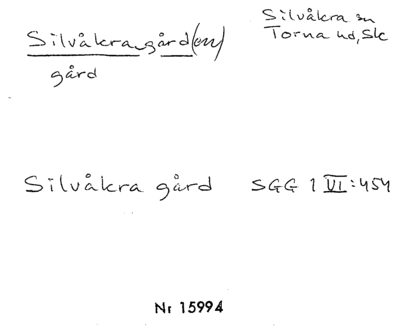 Silvåkra gård(en)
Silvåkra sn
Torna hd, Sk
gård
Silvåkra gård SGG 1 VI:454
Nr 15994